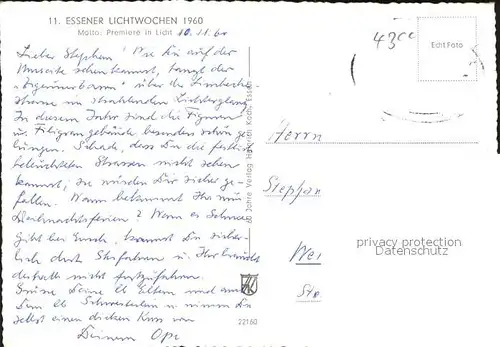 11. ESSENER LICHTWOCHEN 1960
Motto: Premiere in Licht
10.11.60
Lieber Stephan! Wie Du auf der
sehen kannst, hängt der
über die Limbecker-
strasse im strahlenden Lichterglanz.
In diesem Jahr sind die Figuren
u. Filigrangebäude besonders schön
gelungen. Schade, dass Du die festlich
beleuchteten Strassen nicht sehen
kannst; sie würden Dir sicher ge-
fallen. Wann bekommt Ihr nun
Weihnachtsferien? Wenn es Schnee
gibt bei Euch, kannst Du sicher-
lich doch Skifahren u. Ihr braucht
deshalb nicht fortzufahren.
Grüsse Deine lb Eltern und auch
Dein lb Schwesterlein u nimm Du
selbst einen dicken Kuss von
Deinem Opi
60 Jahre Verlag Heinrich Koch, Essen
22160
4300
Echt Foto
Herrn
Stephan
Wei
Str
privacy protection
Datenschutz